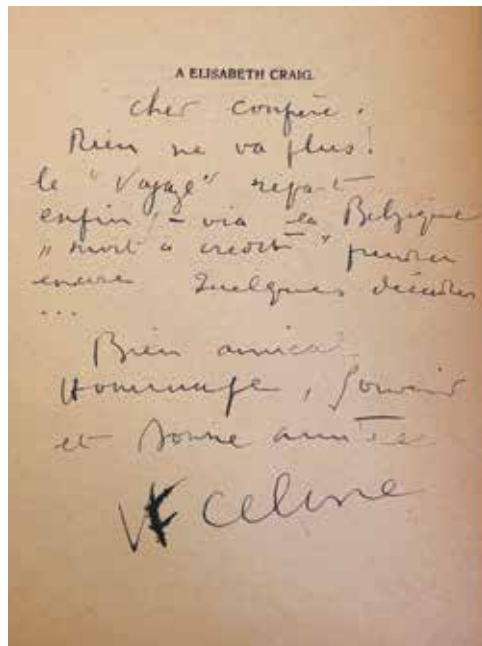 A ELISABETH CRAIG.
cher confrère.
Rien ne va plus!
le "Voyage" repart
enfin! - via la Belgique
"mort à crédit" prendra
encore quelques décades
...
Bien amical
Hommage, Souvenir
et bonne année
LF Celine